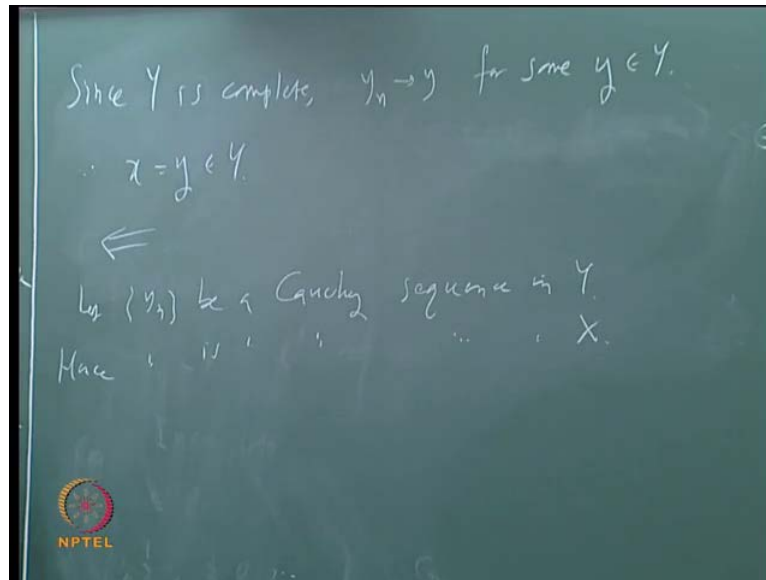 Since Y is complete, yₙ → y for some y ∈ Y.
∴ x = y ∈ Y.
⇐
Let {yₙ} be a Cauchy sequence in Y.
Hence " is " " " " X.
NPTEL